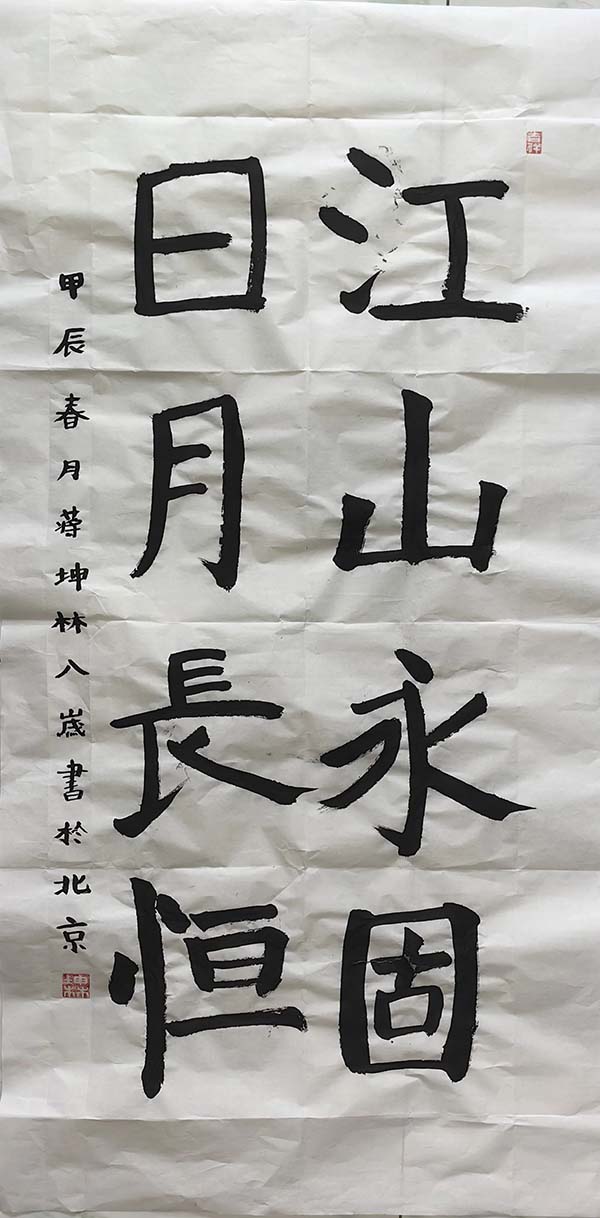 江山永固
日月長恒
甲辰春月蔣坤林八歲書於北京